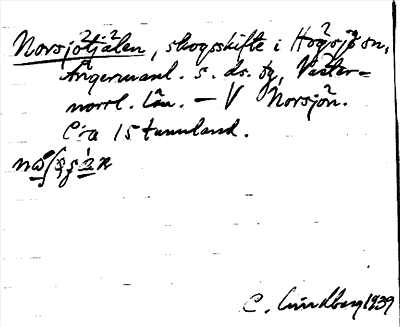 Norsjötjälen, skogsskifte i Högsjö sn,
Ångermanl. s. ds. bg, Väster-
norrl. län. — V Norsjön.
C:a 15 tunnland.
C. Lindberg 1939